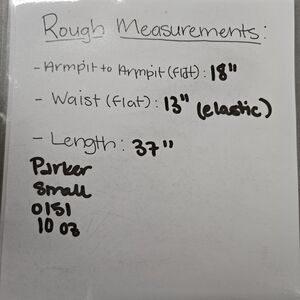 Rough Measurements:
- Armpit to Armpit (flat): 18"
- Waist (flat): 13" (elastic)
- Length: 37"
Parker
Small
0151
10 oz